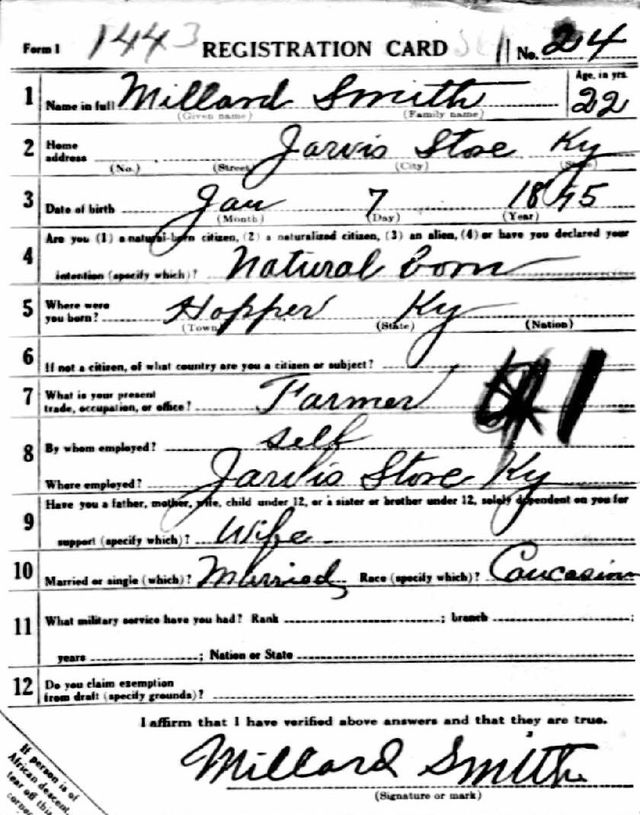 Form 1 1443 REGISTRATION CARD No. 24
1 Name in full Millard Smith Age, in yrs. 22
(Given name) (Family name)
2 Home address Jarvis Store Ky
(No.) (Street) (City) (State)
3 Date of birth Jan 7 1895
(Month) (Day) (Year)
4 Are you (1) a natural-born citizen, (2) a naturalized citizen, (3) an alien, (4) or have you declared your
intention (specify which)? Natural born
5 Where were you born? Hopper Ky
(Town) (State) (Nation)
6 If not a citizen, of what country are you a citizen or subject?
7 What is your present trade, occupation, or office? Farmer
8 By whom employed? self
Where employed? Jarvis Store Ky
9 Have you a father, mother, wife, child under 12, or a sister or brother under 12, solely dependent on you for
support (specify which)? Wife
10 Married or single (which)? Married Race (specify which)? Caucasian
11 What military service have you had? Rank ; branch ;
years ; Nation or State
12 Do you claim exemption from draft (specify grounds)?
I affirm that I have verified above answers and that they are true.
Millard Smith
(Signature or mark)
If person is of
African descent,
tear off this
corner